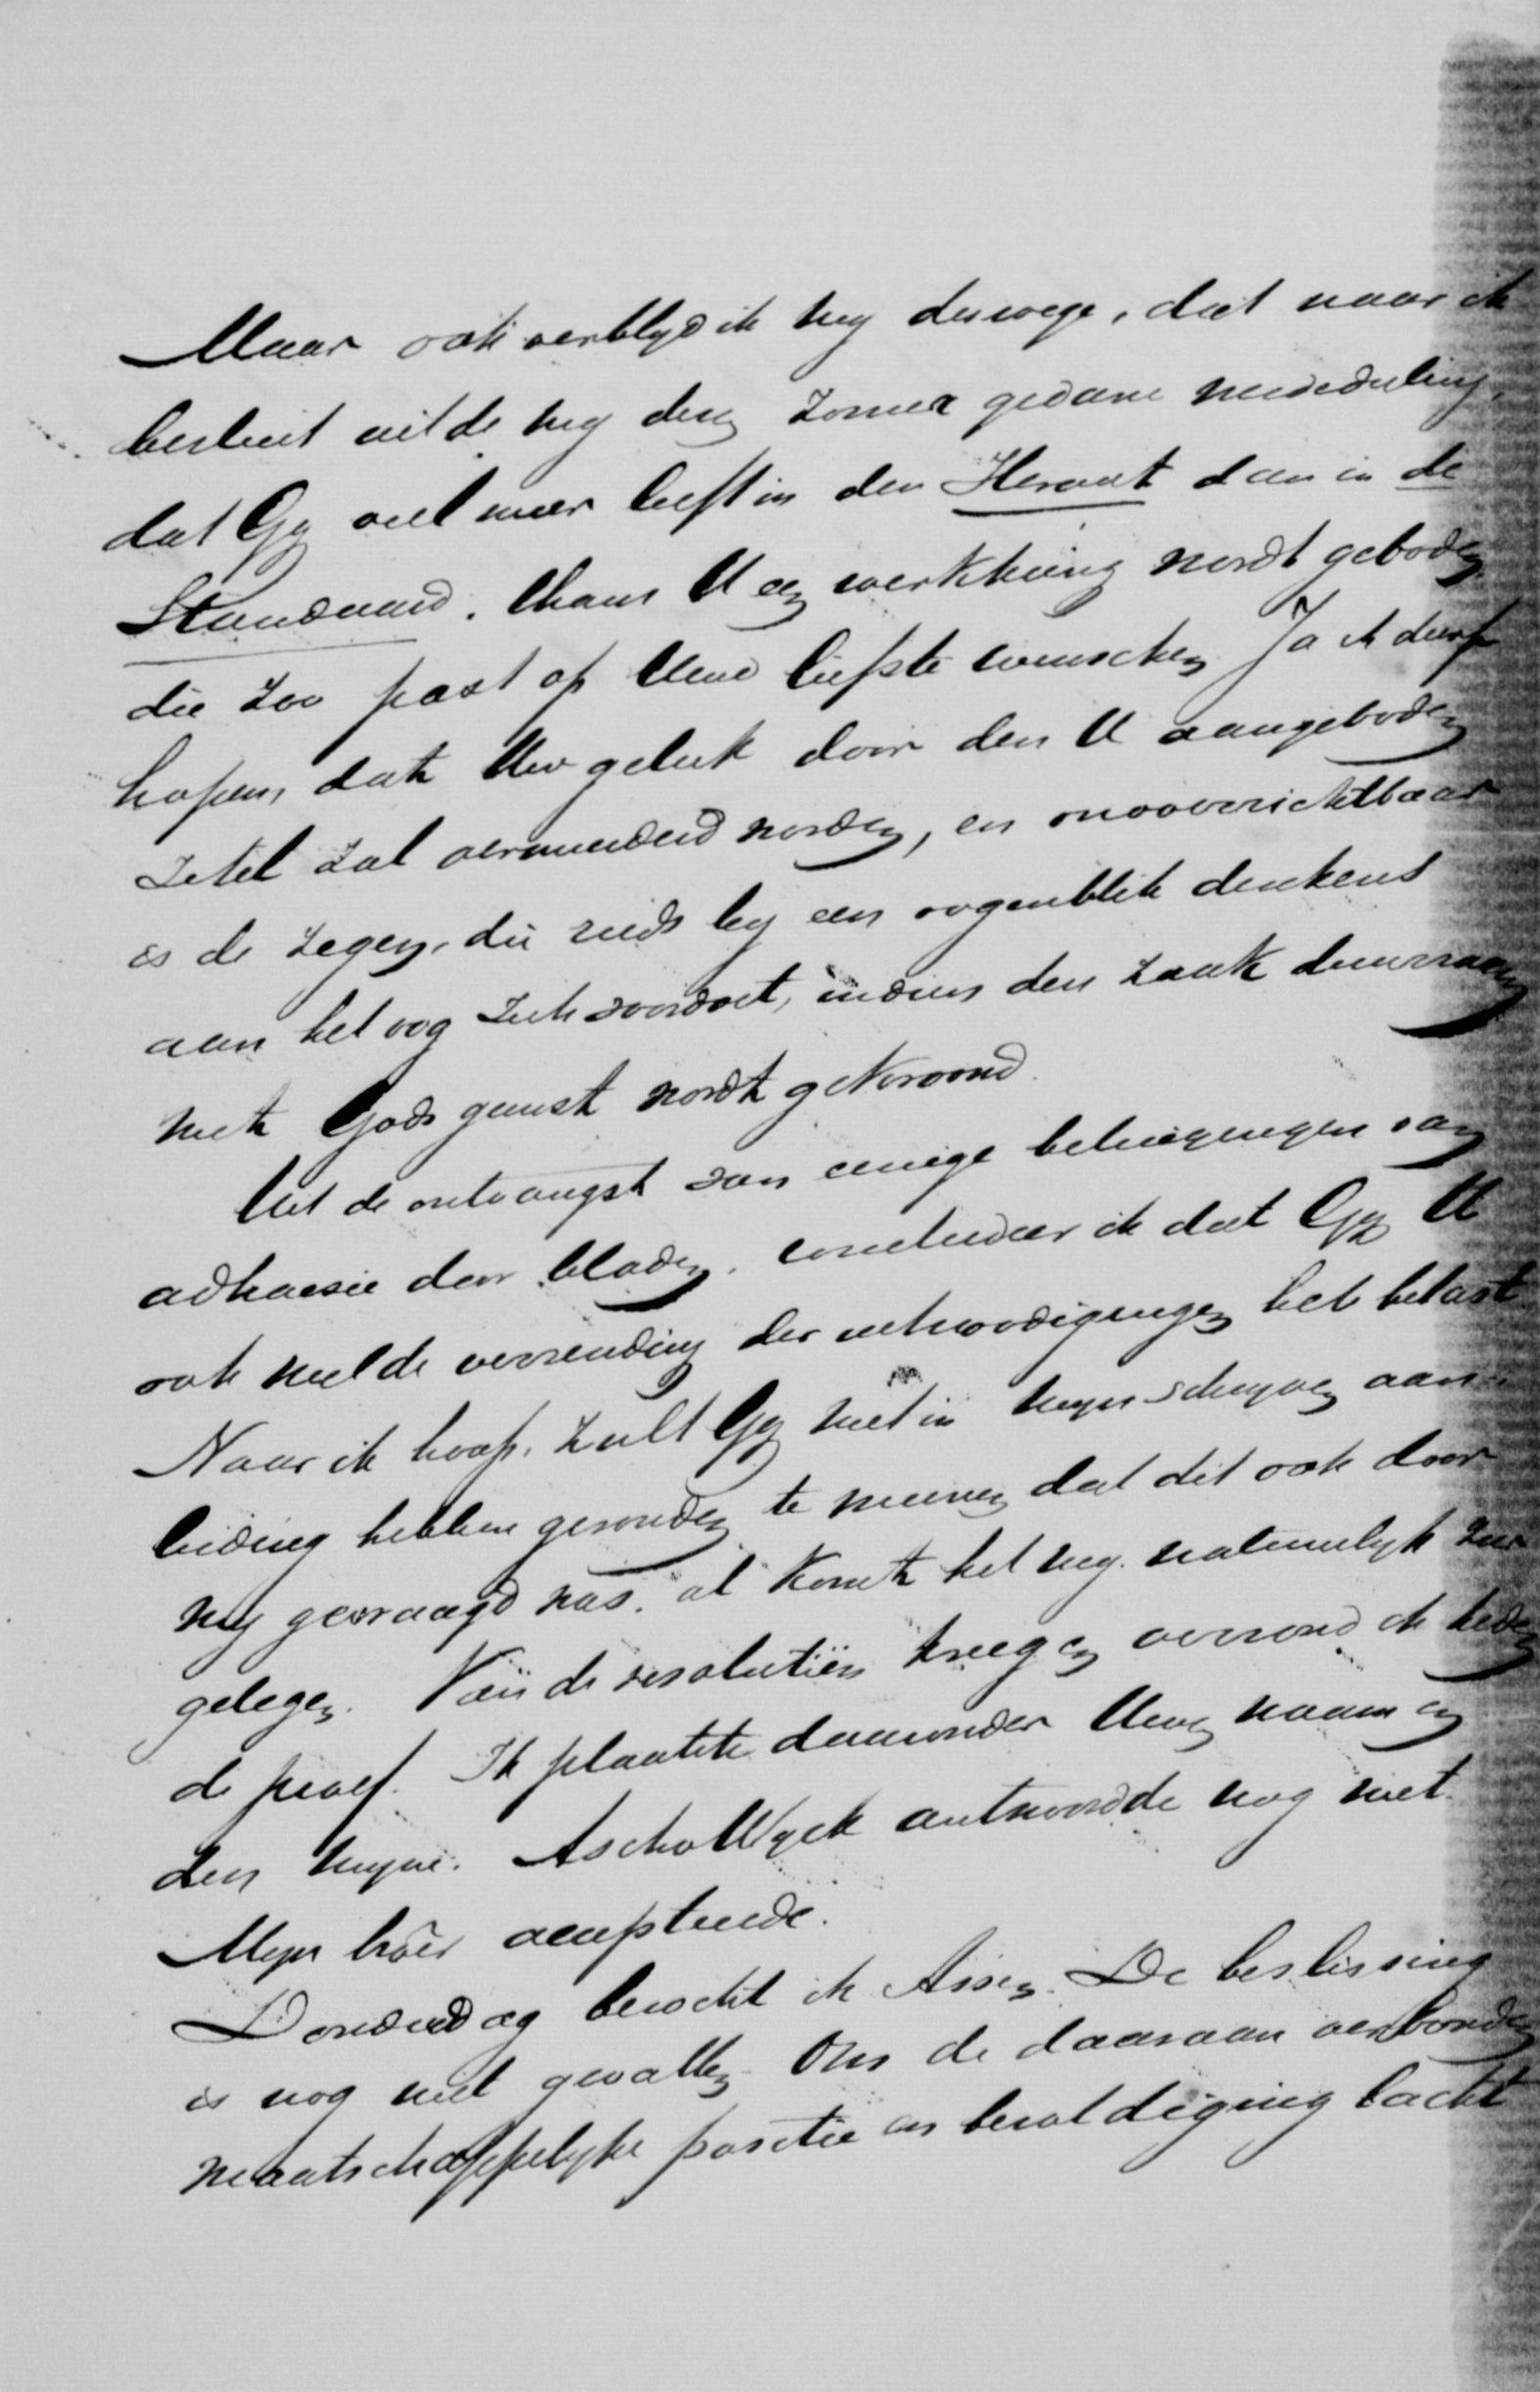 Maar ook verblyd ik my deswege, dat naar ik
besluit uit de my dezen zomer gedane mededeeling,
dat Gy veel meer leeft in den Heraut dan in de
Standaard, thans U een werkkring wordt geboden
die zoo past op Uwe liefste wenschen. Ja ik durf
hopen, dat Uw geluk door den U aangeboden
zetel zal vermeerderd worden, en onoverzichtbaar
is de zegen, die reeds by een oogenblik denkens
aan het oog zich voordoet, indien der zaak deswegen
met Gods gunst wordt gekroond.
Uit de ontvangst van eenige betuigingen van
adhaesie door bladen, concludeer ik dat Gy U
ook met de verzending der uitnoodigingen heb belast
Naar ik hoop, zult Gy niet in myn schryven aan-
leiding hebben gevonden te meenen dat dit ook door
my gevraagd was, al komt het my natuurlyk zeer
gelegen. Van de resolutiën kreeg en verzond ik heden
de proef. Ik plaatste daaronder Uwen naam en
den myne. Asch v Wyck antwoordde nog niet.
Myn broêr accepteerde.
Donderdag bezocht ik Assen. De beslissing
is nog niet gevallen. Om de daaraan verbonden
maatschappelyke positie en bezoldiging lacht